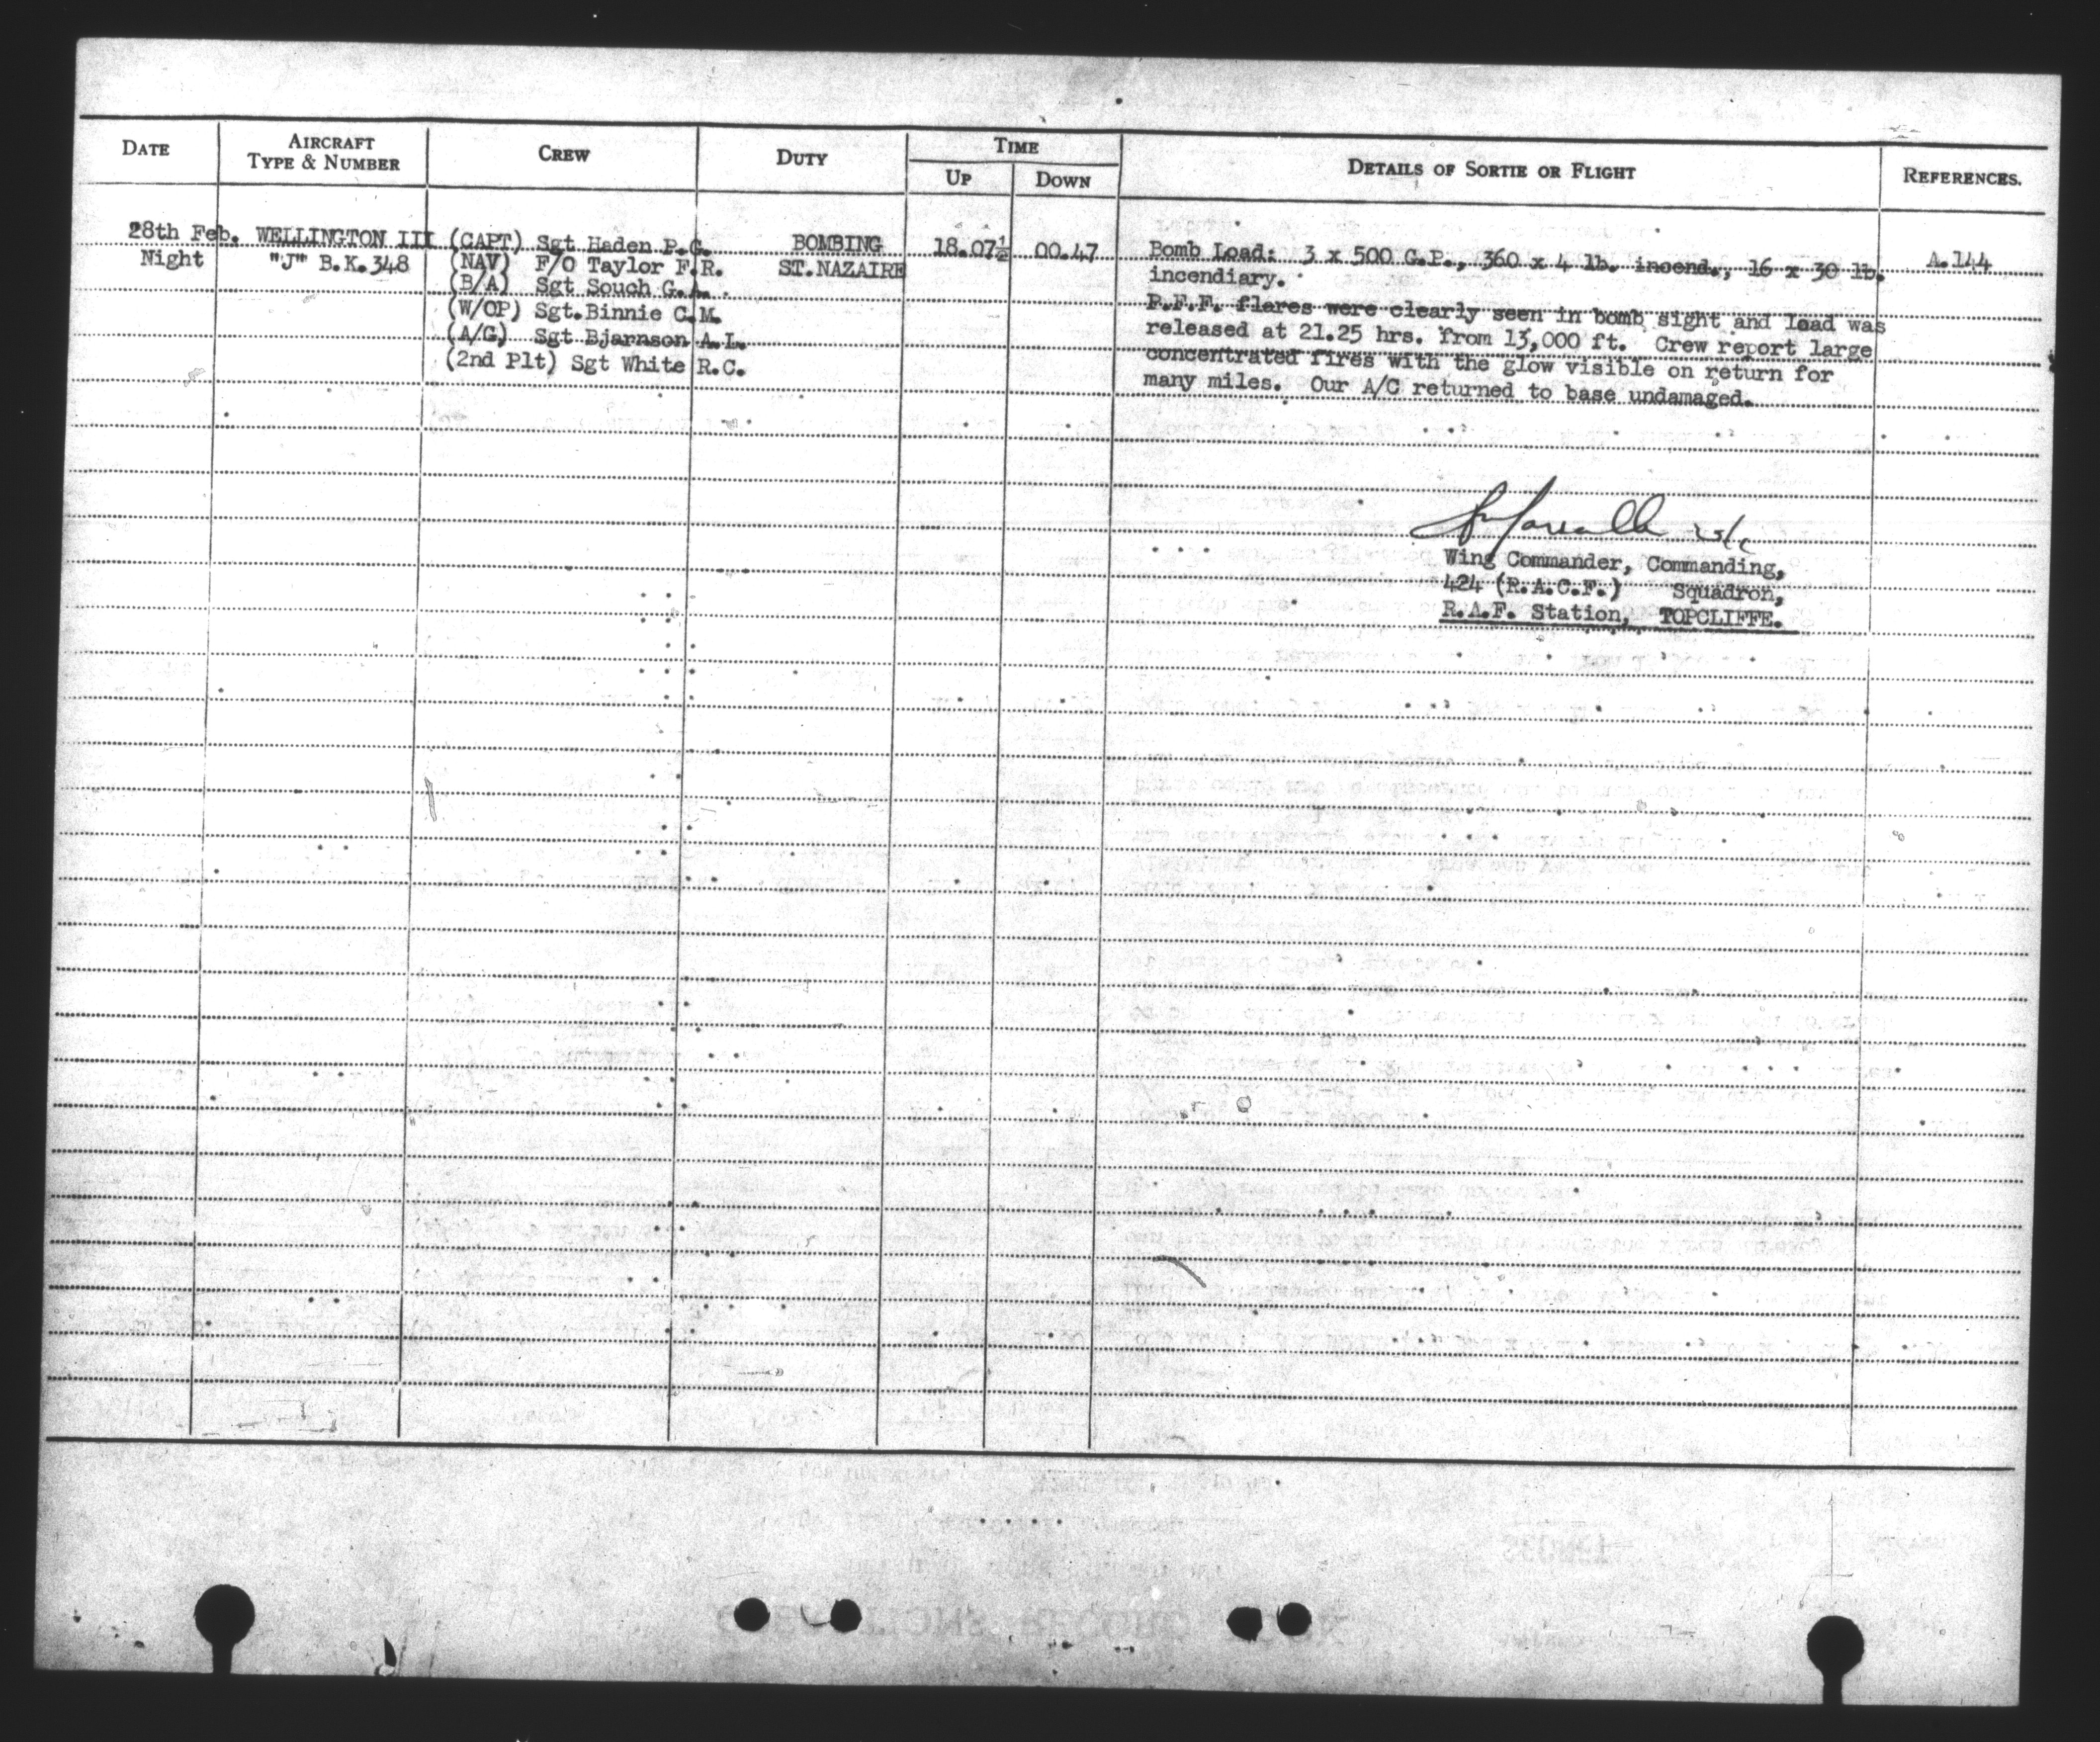 DATE AIRCRAFT TYPE & NUMBER CREW DUTY TIME UP DOWN DETAILS OF SORTIE OR FLIGHT REFERENCES.
28th Feb. WELLINGTON III (CAPT) Sgt Haden P.G. BOMBING 18.07½ 00.47 Bomb Load: 3 x 500 G.P., 360 x 4 lb. incend., 16 x 30 lb. A.144
Night "J" B.K.348 (NAV) F/O Taylor F.R. ST.NAZAIRE incendiary.
(B/A) Sgt Souch G.A.
(W/OP) Sgt.Binnie C.M. P.F.F. flares were clearly seen in bomb sight and load was
(A/G) Sgt Bjarnson A.L. released at 21.25 hrs. from 13,000 ft. Crew report large
(2nd Plt) Sgt White R.C. concentrated fires with the glow visible on return for
many miles. Our A/C returned to base undamaged.
Wing Commander, Commanding,
424 (R.A.C.F.) Squadron,
R.A.F. Station, TOPCLIFFE.